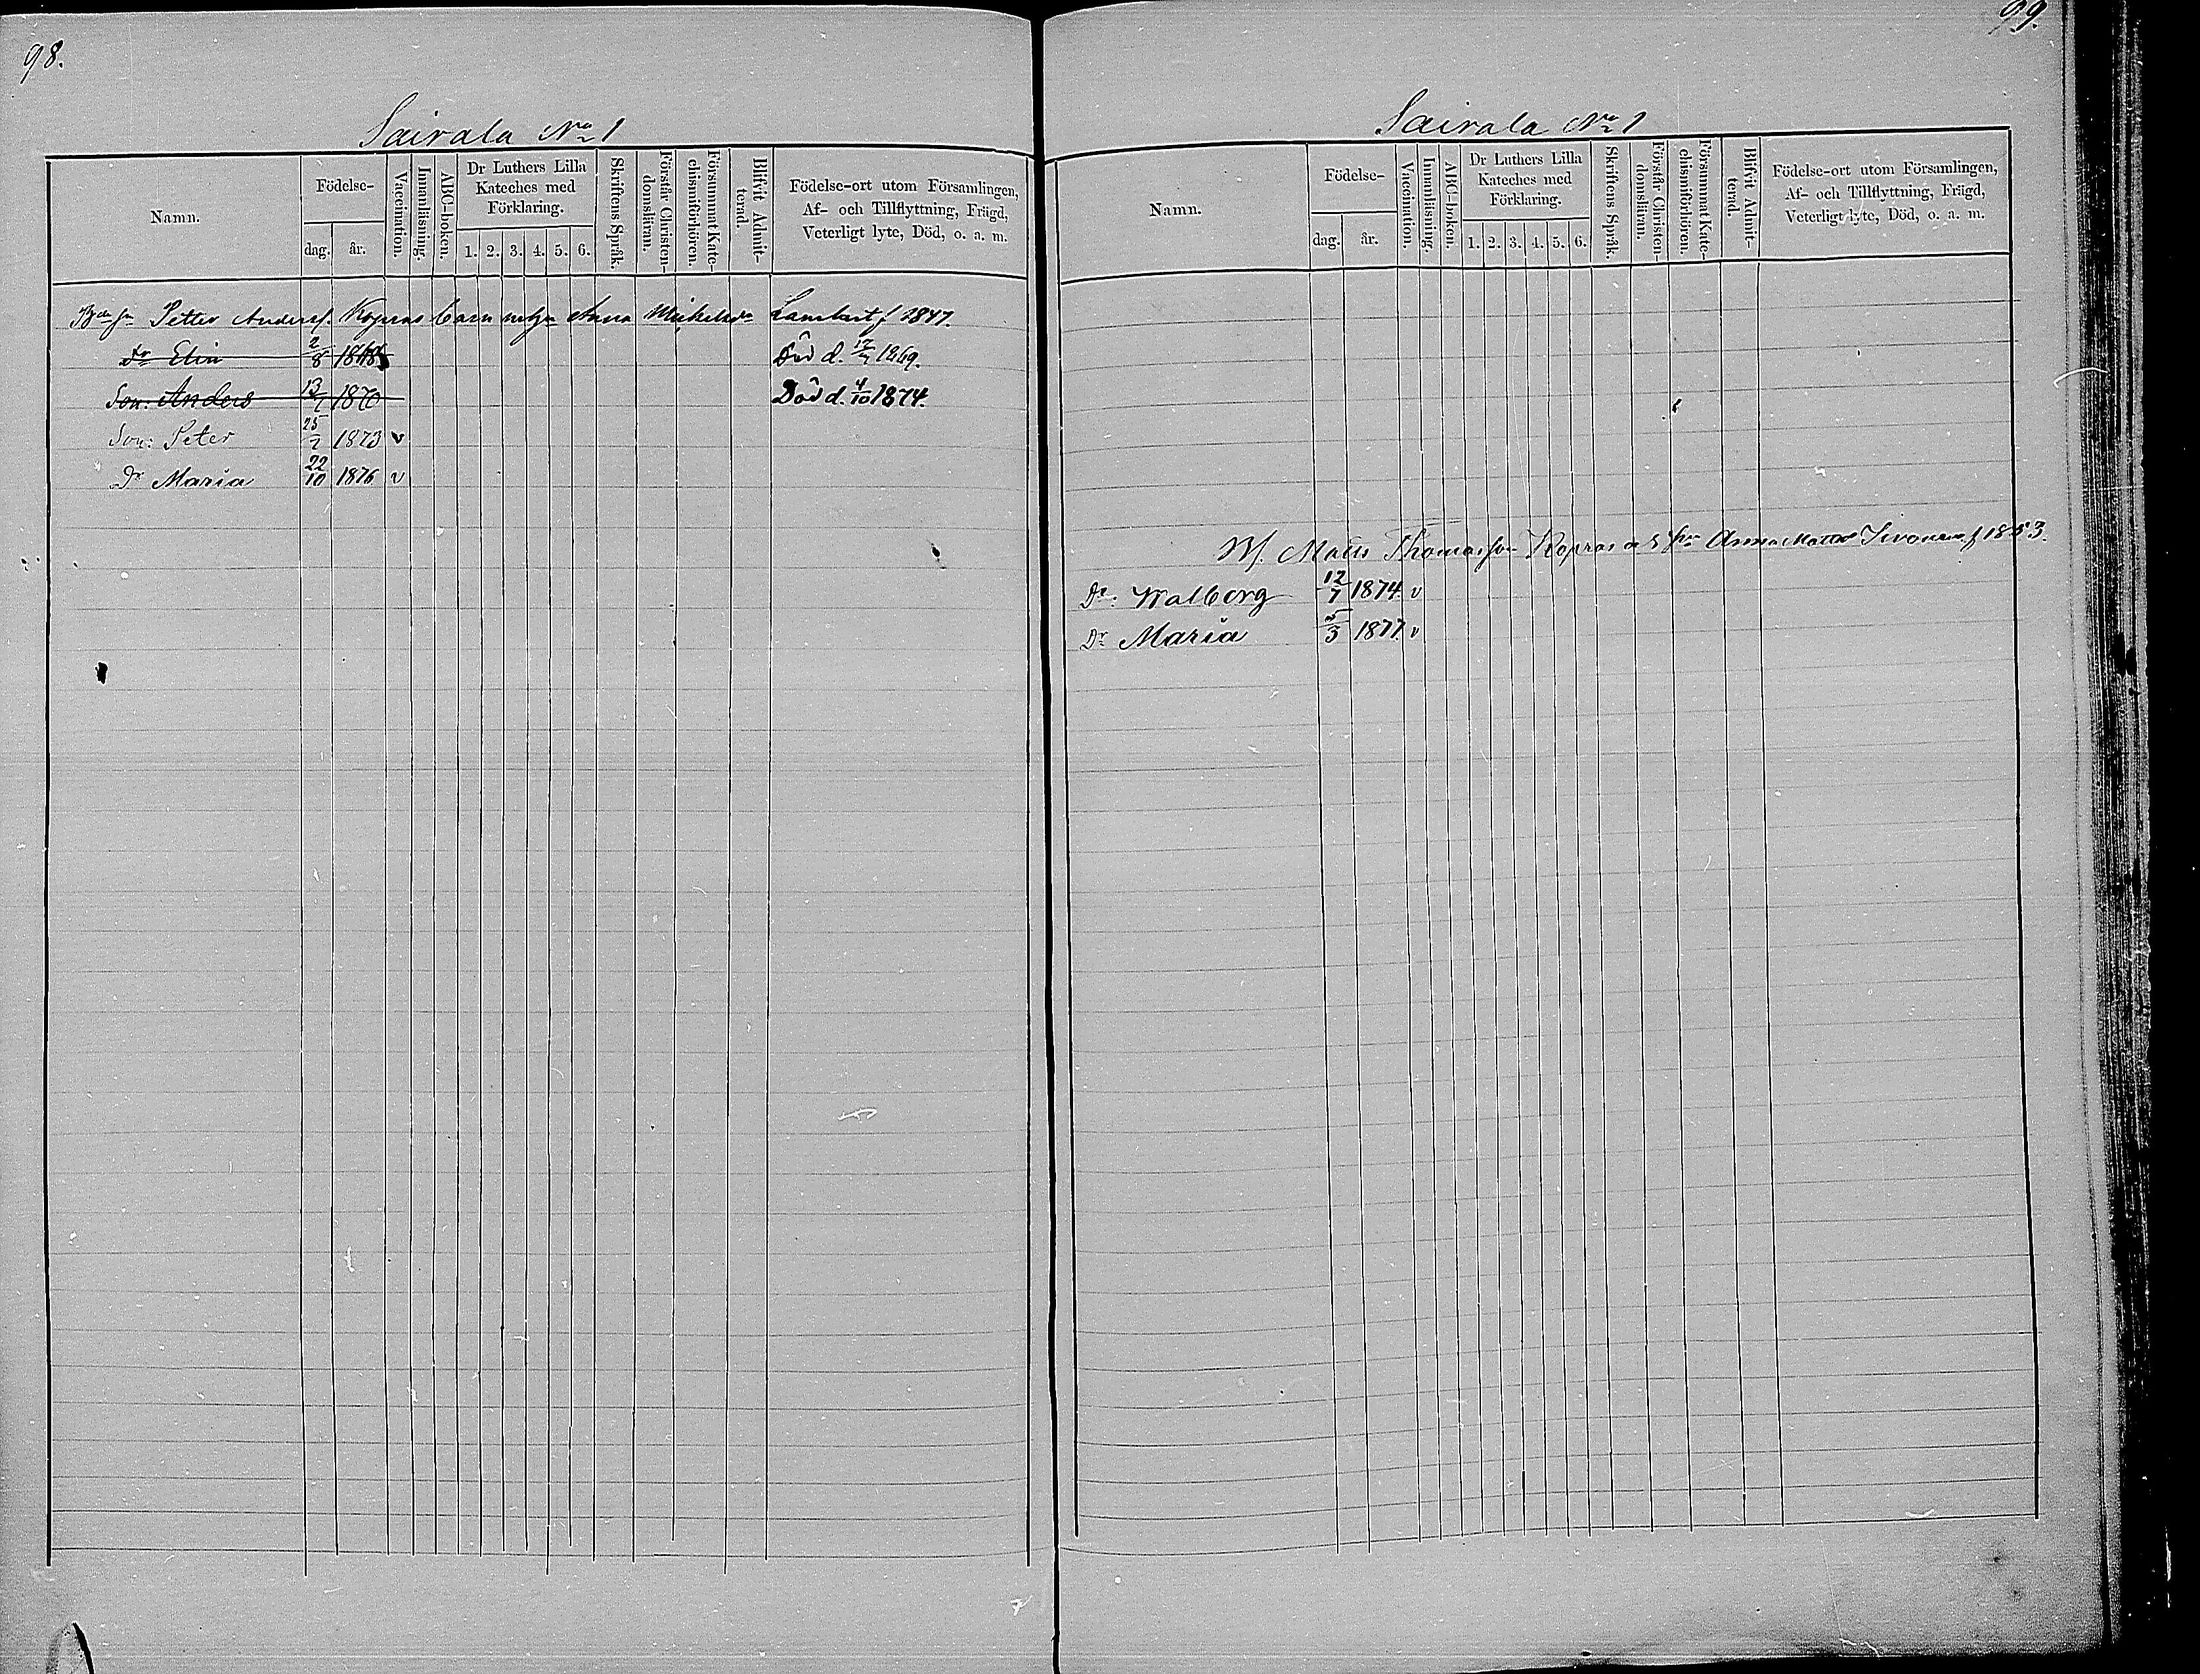 98.
Sairala No 1
Namn.
Födelse-
dag.
år.
Vaccination.
Innanläsning.
ABC-boken.
Dr Luthers Lilla
Kateches med
Förklaring.
1. 2. 3. 4. 5. 6.
Skriftens Språk.
Förstår Christen-
domsläran.
Försummat Kate-
chismiförhören.
Blifvit Admit-
terad.
Födelse-ort utom Församlingen,
Af- och Tillflyttning, Frägd,
Veterligt lyte, Död, o. a. m.
Petter Anders. Kopras barn m hu Anna Mickelsdr f 1847.
Dr Elin 2/8 1868 Död d. 12/7 1869.
Son: Anders 13/7 1870 Död d. 4/10 1874.
Son: Peter 25/7 1873 v
Dr Maria 22/10 1876 v
99.
Sairala No 1
Namn.
Födelse-
dag.
år.
Vaccination.
Innanläsning.
ABC-boken.
Dr Luthers Lilla
Kateches med
Förklaring.
1. 2. 3. 4. 5. 6.
Skriftens Språk.
Förstår Christen-
domsläran.
Försummat Kate-
chismiförhören.
Blifvit Admit-
terad.
Födelse-ort utom Församlingen,
Af- och Tillflyttning, Frägd,
Veterligt lyte, Död, o. a. m.
Matts Thomasson Kopras Anna Mattsd f 1853.
Dr: Walborg 12/7 1874 v
Dr Maria 5/3 1877. v